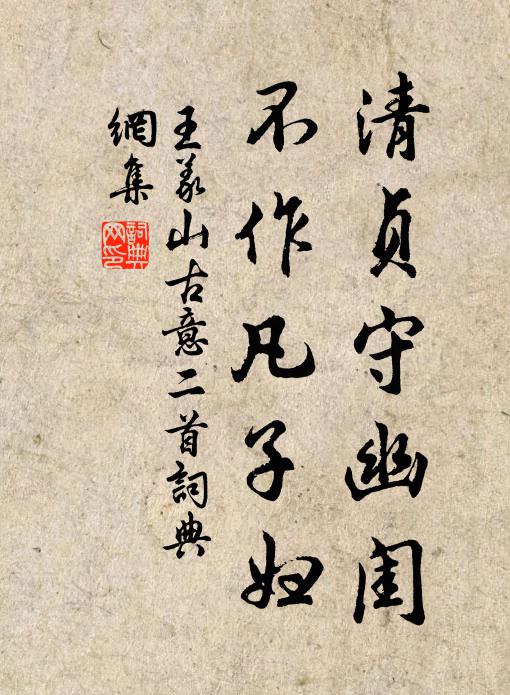 清貞守幽閨
不作凡子婦
王義山古意二首詞典
網集
詞典網印